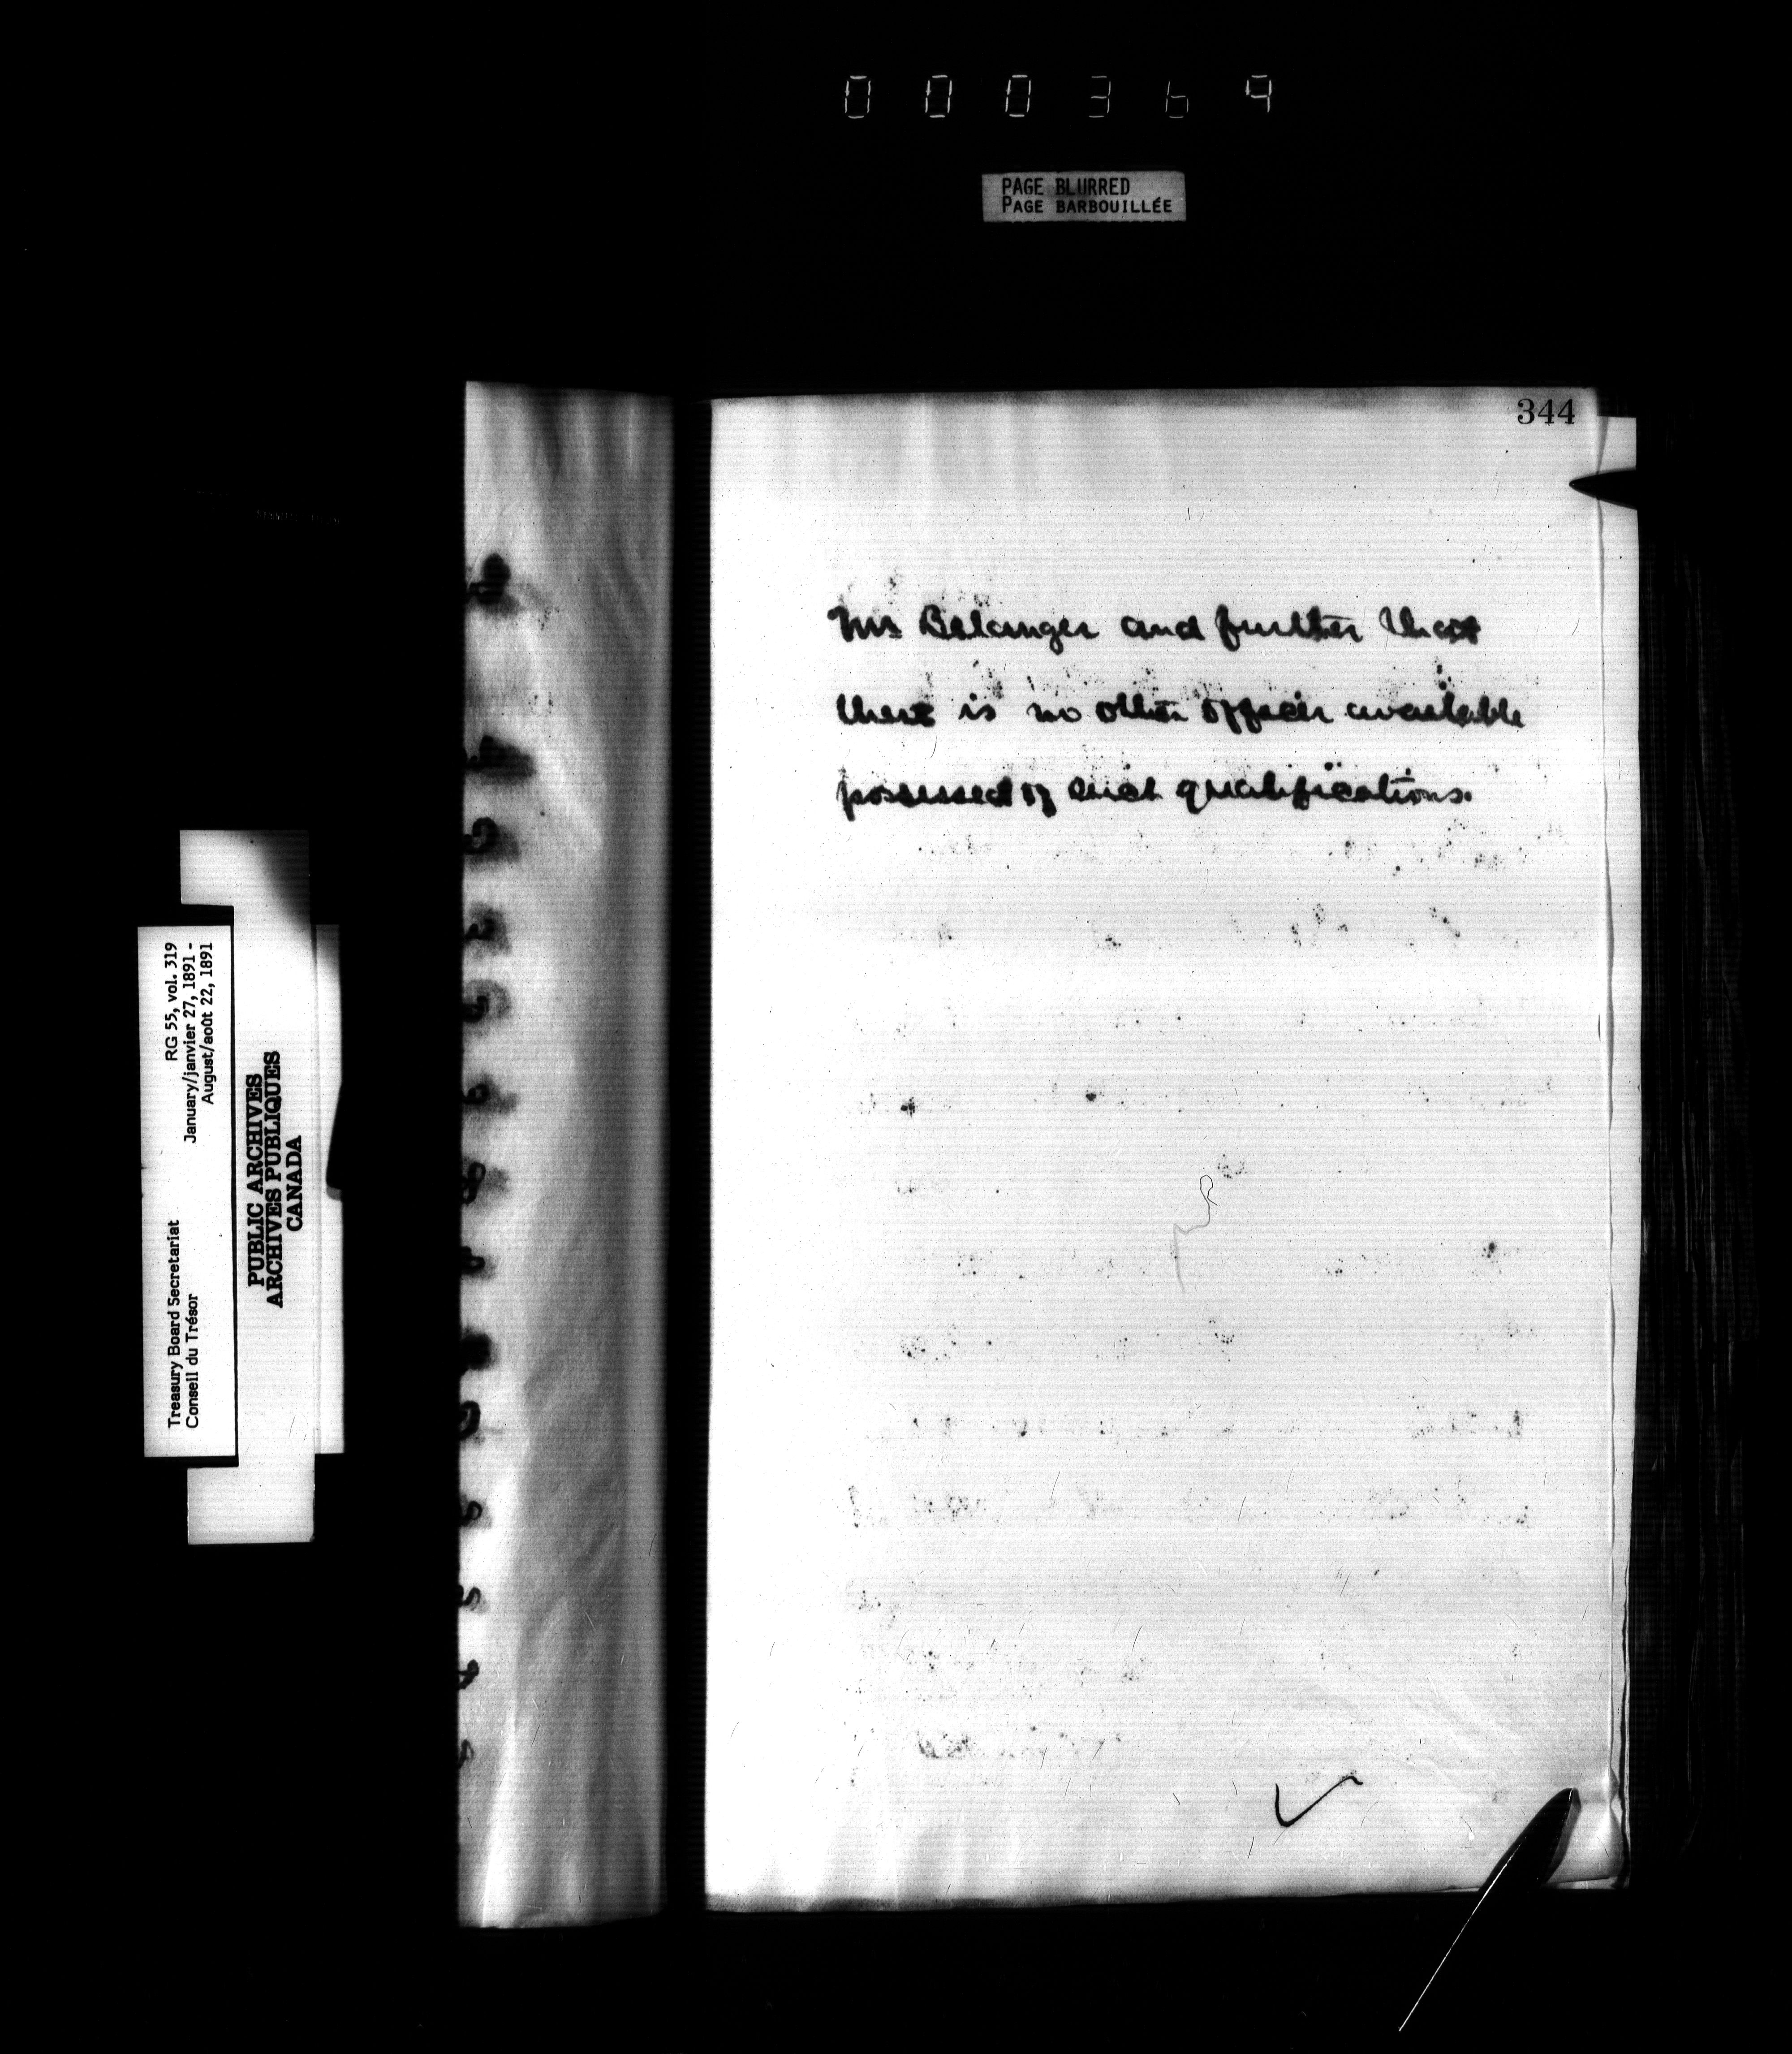 000369
PAGE BLURRED
PAGE BARBOUILLÉE
344
Mr Belanger and further that
there is no other officer available
possessed of such qualifications.
RG 55, vol. 319
January/janvier 27, 1891 -
August/août 22, 1891
Treasury Board Secretariat
Conseil du Trésor
PUBLIC ARCHIVES
ARCHIVES PUBLIQUES
CANADA